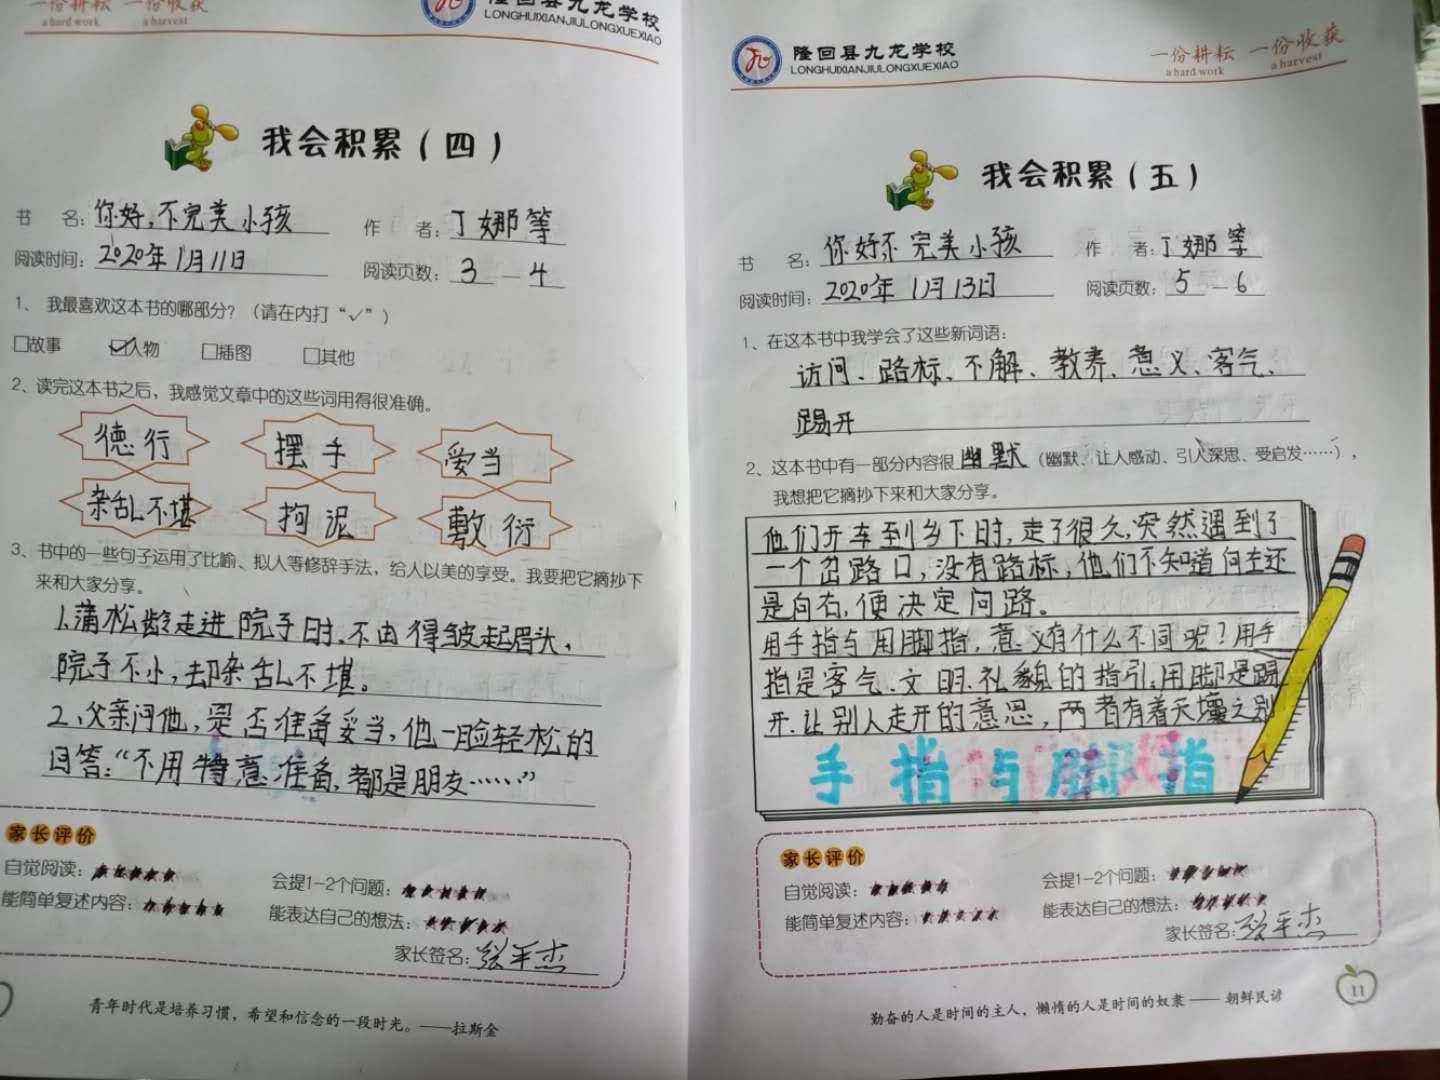 一份耕耘 一份收获
a hard work a harvest
隆回县九龙学校
LONGHUIXIANJIULONGXUEXIAO
我会积累（四）
书 名：你好，不完美小孩 作 者：丁娜等
阅读时间：2020年1月11日 阅读页数：3 — 4
1、 我最喜欢这本书的哪部分？（请在内打“√”）
□故事 ☑人物 □插图 □其他
2、读完这本书之后，我感觉文章中的这些词用得很准确。
德行 摆手 妥当
杂乱不堪 拘泥 敷衍
3、书中的一些句子运用了比喻、拟人等修辞手法，给人以美的享受。我要把它摘抄下
来和大家分享。
1.蒲松龄走进院子时，不由得皱起眉头，
院子不小，却杂乱不堪。
2、父亲问他，是否准备妥当，他一脸轻松的
回答：“不用特意准备，都是朋友……”
家长评价
自觉阅读：★★★★★ 会提1-2个问题：★★★★★
能简单复述内容：★★★★★ 能表达自己的想法：★★★★★
家长签名：张平杰
青年时代是培养习惯，希望和信念的一段时光。——拉斯金
隆回县九龙学校
LONGHUIXIANJIULONGXUEXIAO
一份耕耘 一份收获
a hard work a harvest
我会积累（五）
书 名：你好不完美小孩 作 者：丁娜等
阅读时间：2020年1月13日 阅读页数：5 — 6
1、在这本书中我学会了这些新词语：
访问、路标、不解、教养、意义、客气、
踢开
2、这本书中有一部分内容很幽默（幽默、让人感动、引人深思、受启发……），
我想把它摘抄下来和大家分享。
他们开车到乡下时，走了很久，突然遇到了
一个岔路口，没有路标，他们不知道向左还
是向右，便决定问路。
用手指与用脚指，意义有什么不同呢？用手
指是客气、文明、礼貌的指引，用脚是踢
开、让别人走开的意思，两者有着天壤之别
手指与脚指
家长评价
自觉阅读：★★★★★ 会提1-2个问题：★★★★★
能简单复述内容：★★★★★ 能表达自己的想法：★★★★★
家长签名：张平杰
勤奋的人是时间的主人，懒惰的人是时间的奴隶 —— 朝鲜民谚
11